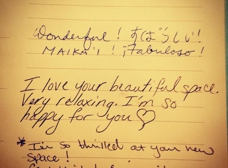 Wonderful! すばらしい!
MAIKA'I! ¡Fabuloso!
I love your beautiful space.
Very relaxing. I'm so
happy for you♡
*I'm so thrilled at your new
space!